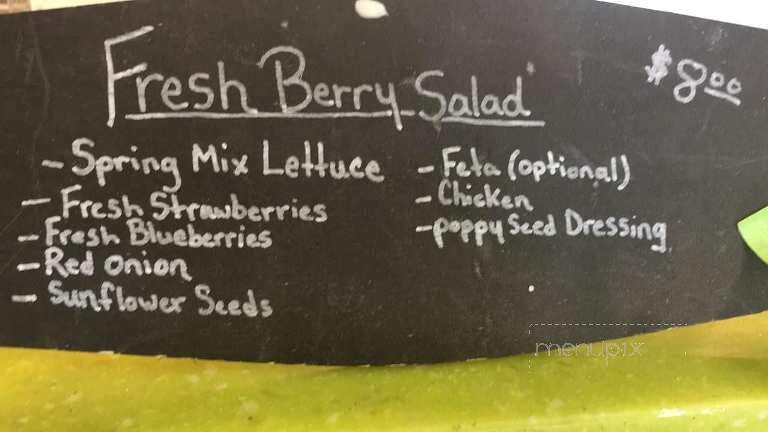 Fresh Berry Salad
$8.00
- Spring Mix Lettuce
- Fresh Strawberries
- Fresh Blueberries
- Red Onion
- Sunflower Seeds
- Feta (optional)
- Chicken
- poppy Seed Dressing
menupix